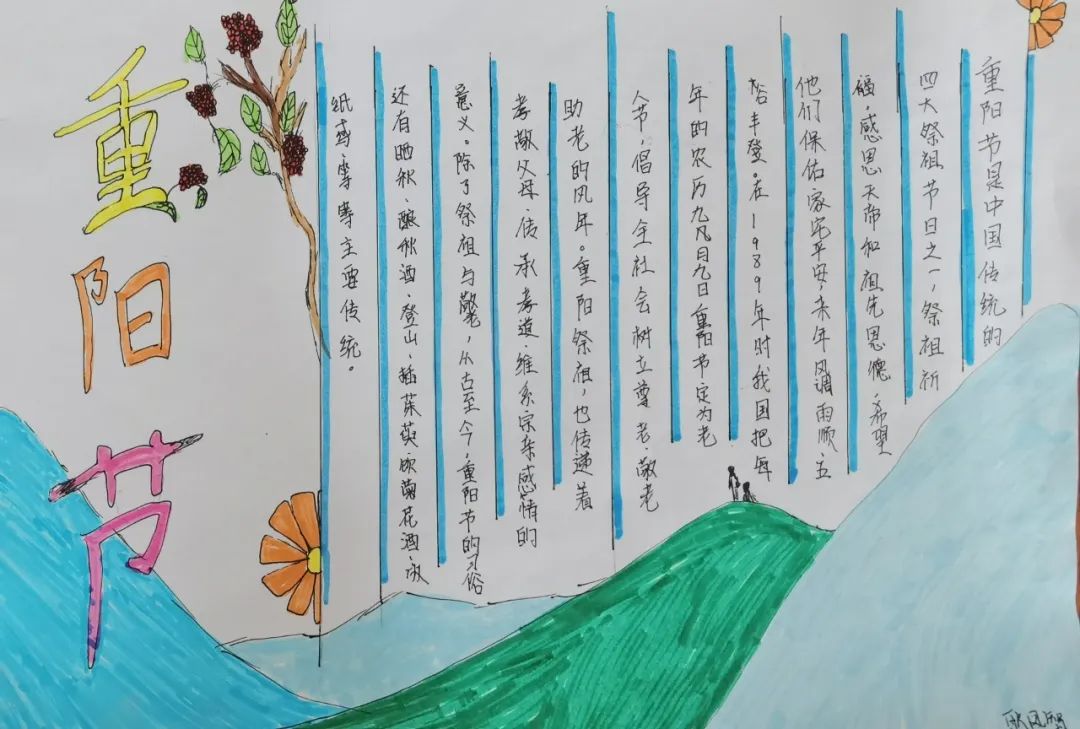 重阳节
重阳节是中国传统的
四大祭祖节日之一,祭祖祈
福、感恩天帝和祖先恩德、希望
他们保佑家宅平安,来年风调雨顺、五
丰登。在1989年时我国把每
年的农历九月九日重阳节定为老
人节,倡导全社会树立尊老、敬老
助老的风年。重阳祭祖,也传递着
孝敬父母、传承孝道、维系宗亲感情的
意义。除了祭祖与敬老,从古至今,重阳节的习俗
还有晒秋、酿秋酒、登山、插茱萸、饮菊花酒、放
纸鸢等等主要传统。